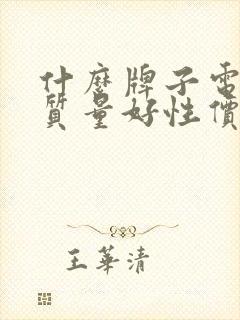 什麼牌子電
質量好性價
王華清